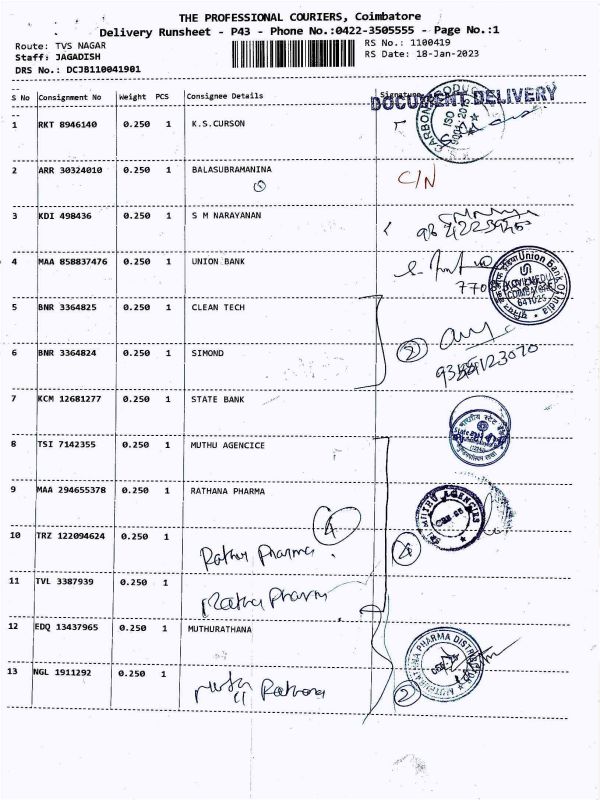 THE PROFESSIONAL COURIERS, Coimbatore
Delivery Runsheet - P43 - Phone No.:0422-3505555 - Page No.:1
Route: TVS NAGAR RS No.: 1100419
Staff: JAGADISH RS Date: 18-Jan-2023
DRS No.: DCJB110041901
S No Consignment No Weight PCS Consignee Details Signature
DOCUMENT DELIVERY
1 RKT 8946140 0.250 1 K.S.CURSON
2 ARR 30324010 0.250 1 BALASUBRAMANINA C/N
3 KDI 498436 0.250 1 S M NARAYANAN
4 MAA 858837476 0.250 1 UNION BANK
Union Bank Of India
COIMBATORE
641025
5 BNR 3364825 0.250 1 CLEAN TECH
2
6 BNR 3364824 0.250 1 SIMOND
7 KCM 12681277 0.250 1 STATE BANK
8 TSI 7142355 0.250 1 MUTHU AGENCICE
9 MAA 294655378 0.250 1 RATHANA PHARMA
SRI MUTHU AGENCIES
4
10 TRZ 122094624 0.250 1 Rathna Pharma
4
11 TVL 3387939 0.250 1 Rathna Pharma
12 EDQ 13437965 0.250 1 MUTHURATHANA
MUTHURATHNA PHARMA DISTRIBUTOR
13 NGL 1911292 0.250 1 Muthu Rathna
2